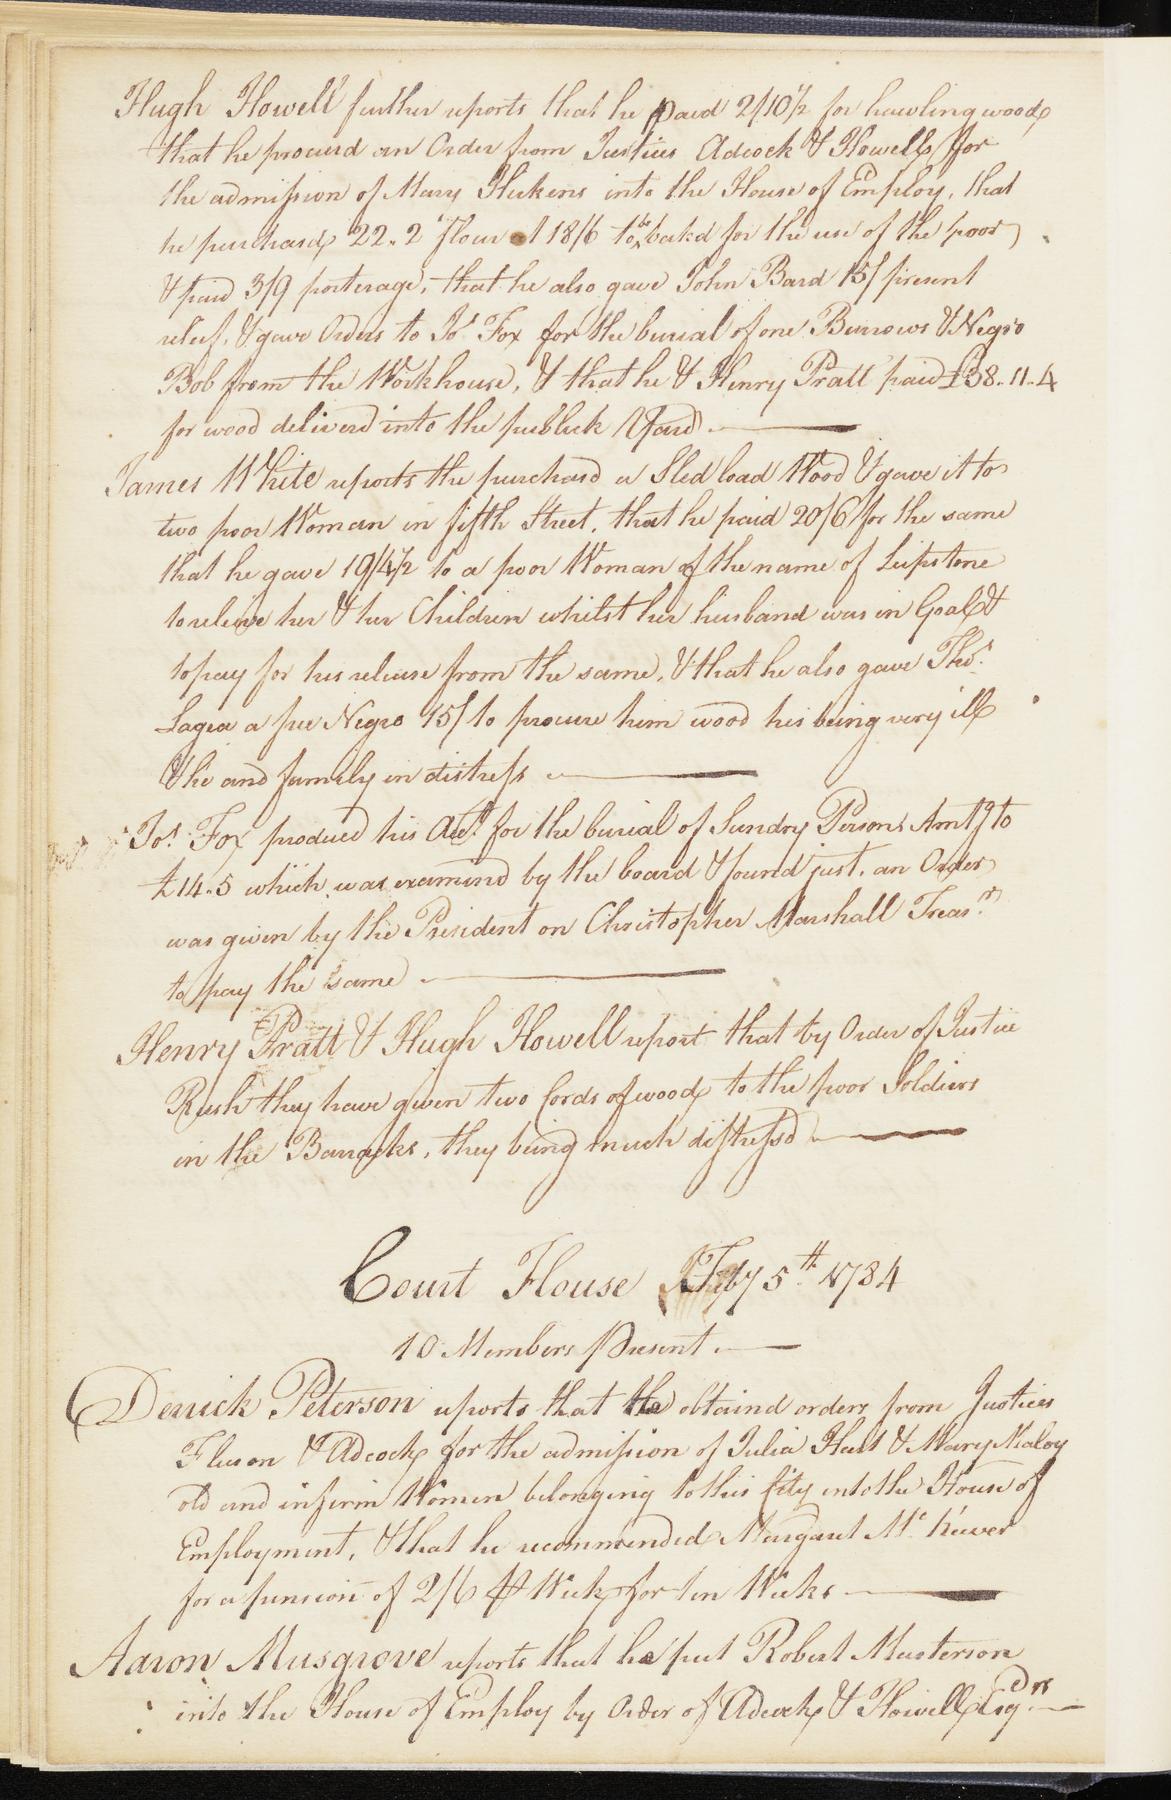 Hugh Howell further reports that he paid 2/10½ for hawling wood
that he procurd an Order from Justices Adcock & Howell for
the admission of Mary Hickens into the House of Employ, that
he purchasd 22.2 flour at 18/6 to be bakd for the use of the poor
& paid 3/9 porterage, that he also gave John Bard 15/ present
relief, & gave Orders to Jos. Fox for the burial of one Burrows & Negro
Bob from the Workhouse, & that he & Henry Pratt paid £38..11..4
for wood deliverd into the publick Yard
James White reports the purchasd a Sled load Wood & gave it to
two poor Woman in fifth Street, that he paid 20/6 for the same
that he gave 19/4½ to a poor Woman of the name of Leipstone
to relieve her & her Children whilst her husband was in Goal &
to pay for his release from the same, & that he also gave Thos.
Lagea a free Negro 15/ to procure him wood his being very ill
& he and family in distress
Jos. Fox producd his Acct. for the burial of Sundry Persons Amtg to
£14..5 which was examind by the board & found just, an Order
was given by the President on Christopher Marshall Treasr.
to pay the same
Henry Pratt & Hugh Howell report that by Order of Justice
Rush they have given two Cords of wood to the poor Soldiers
in the Barracks, they being much distressd
Court House Feby 5th 1784
10 Members Present.
Derrick Peterson reports that he obtaind orders from Justices
& Adcock for the admission of Julia Hart & Mary Nealoy
old and infirm Women belonging to this City into the House of
Employment, & that he recommended Margaret Mc
for a pension of 2/6 ⅌ Week for ten Weeks
Aaron Musgrove reports that he put Robert Masterson
into the House of Employ by Order of Adcock & Howell Esqrs.